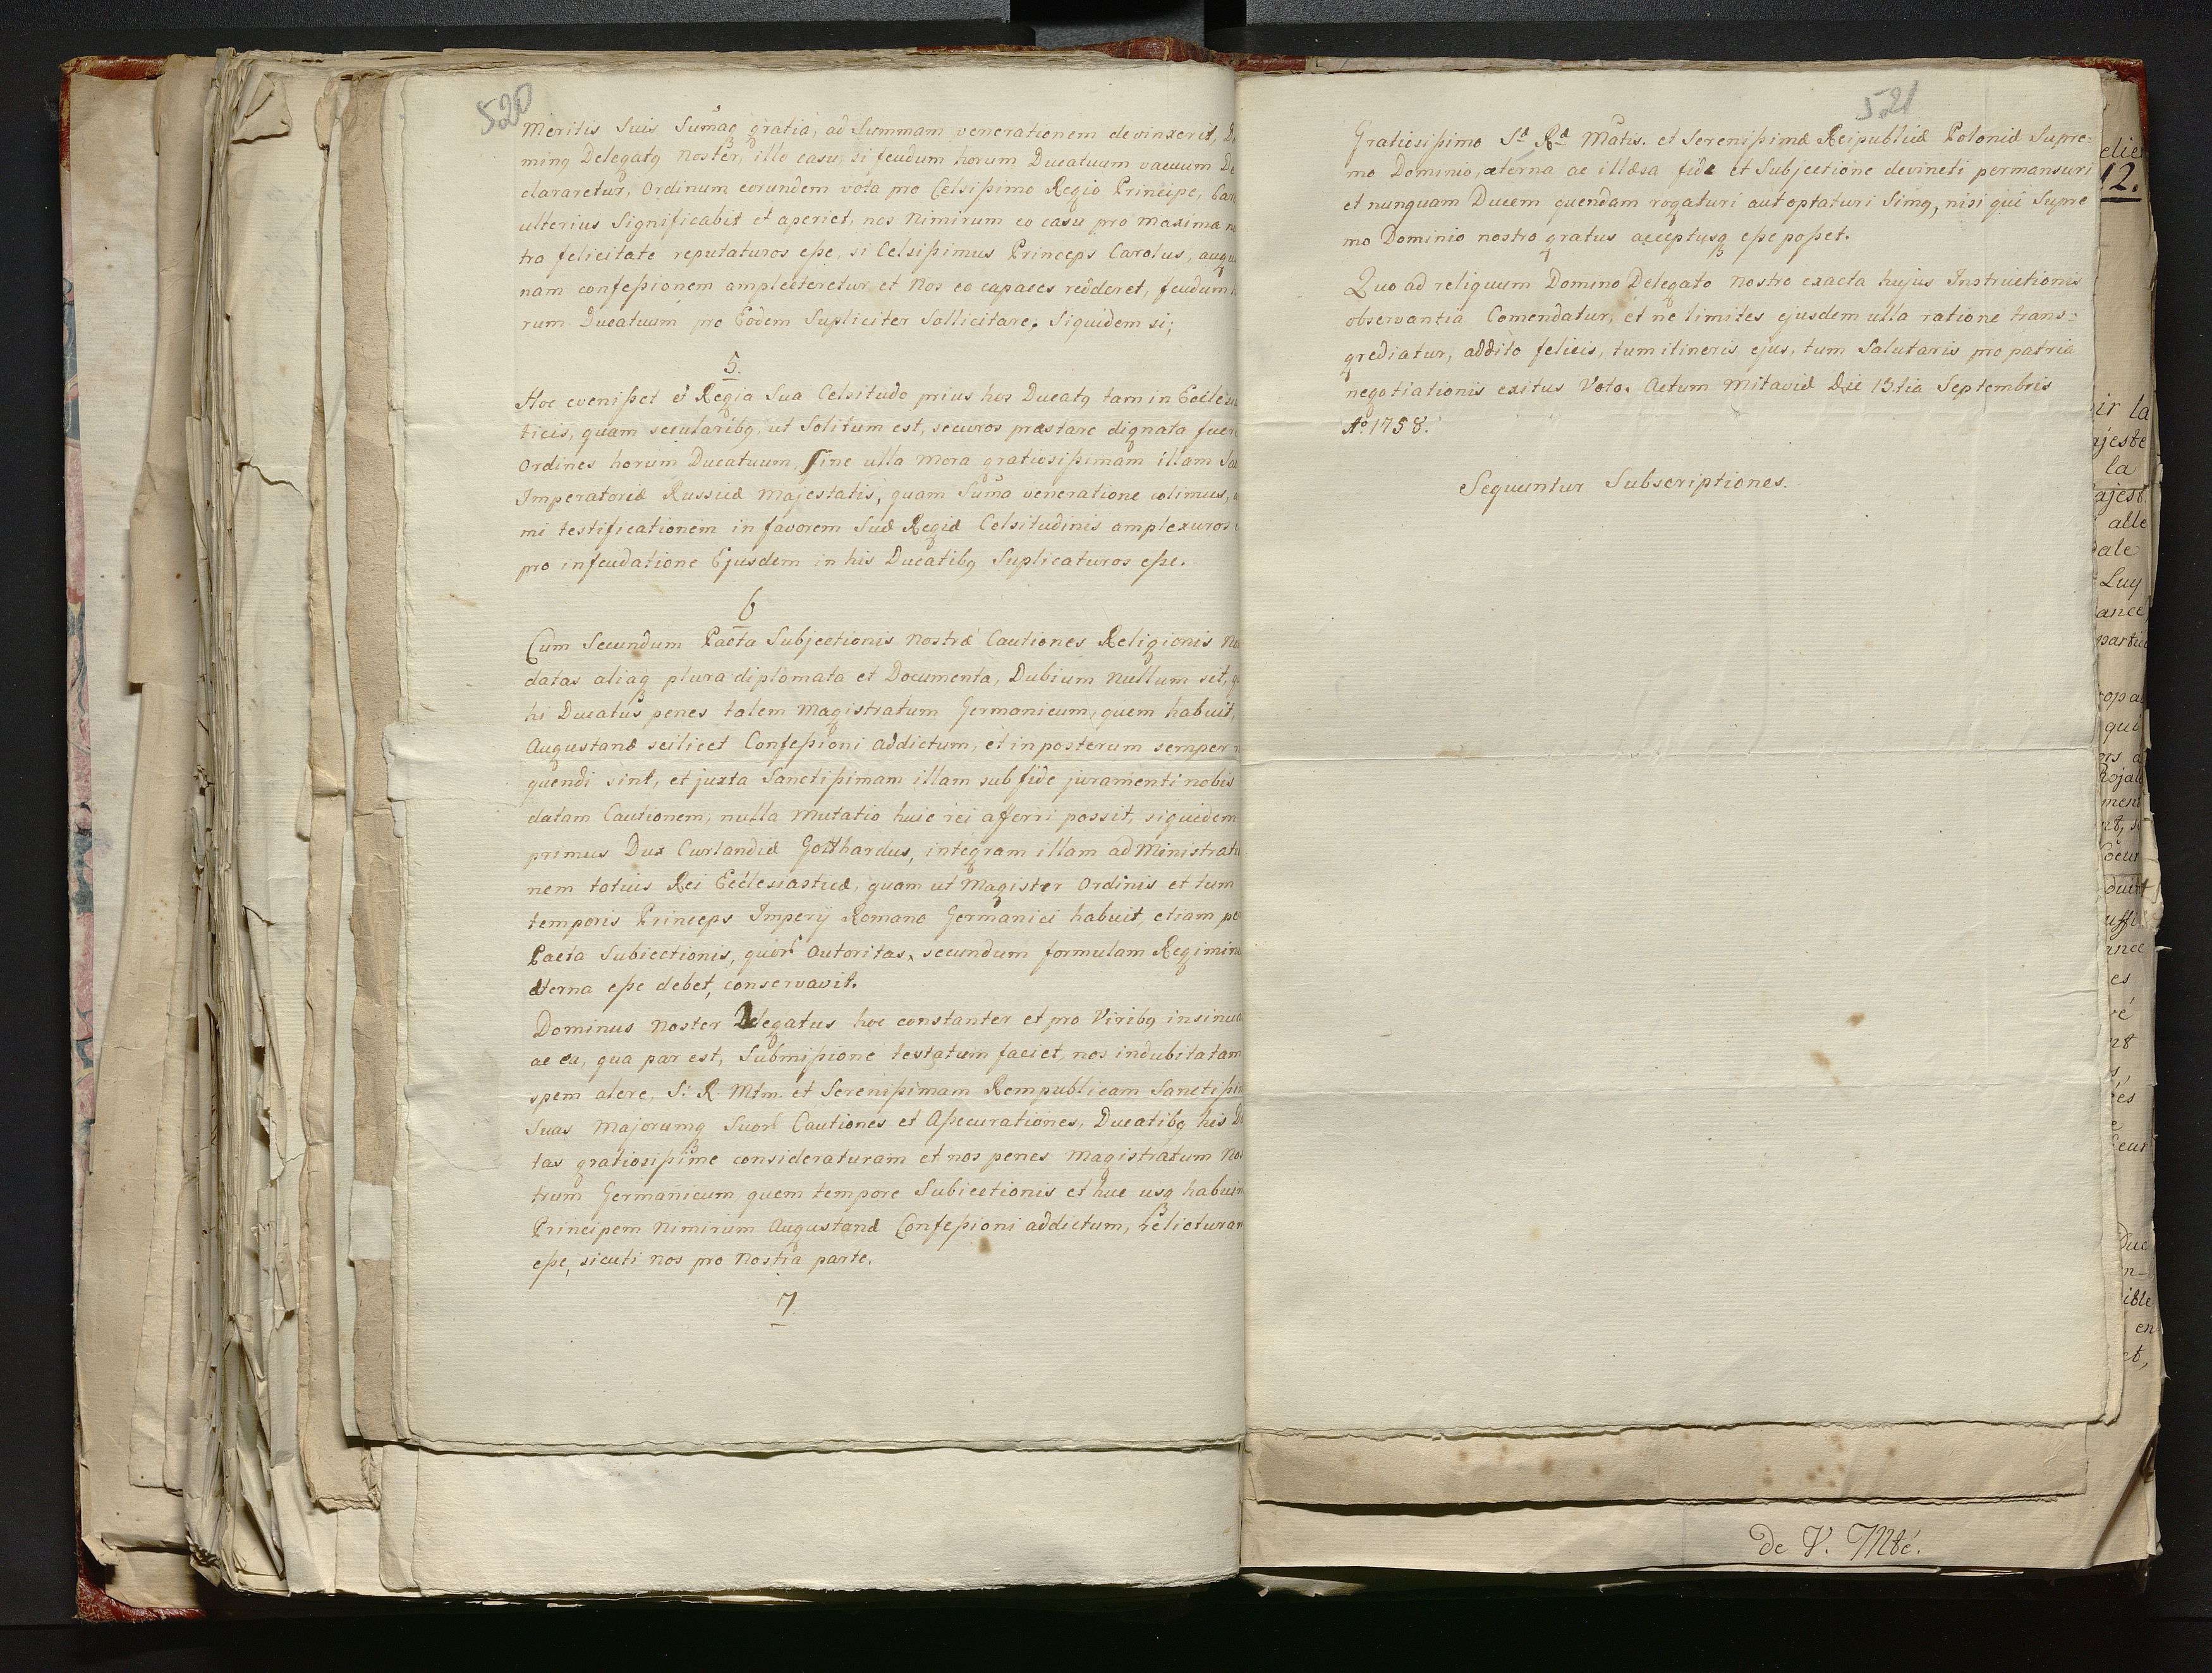 520
Meritis Suis Sumaq gratia, ad Summam venerationem devinxerit, Do
minq Delegatq Noster, illo casu, si feudum horum Ducatuum vacuum De
clararetur, Ordinum eorundem vota pro Celsißimo Regio Principe, Car
ulterius Significabit et aperiet, nos Nimirum eo casu pro maxima n
tra felicitate reputaturos eße, si Celsißimus Princeps Carolus, augu
nam confeßionem amplecteretur et Nos eo capaces redderet, feudum
rum Ducatuum pro Eodem Supliciter Sollicitare, Siquidem si;
5.
Hoc evenißet et Regia Sua Celsitudo prius hos Ducatq tam in Eccles
ticis, quam secularibq, ut Solitum est, securos præstare dignata fuer
Ordines horum Ducatuum, Sine ulla Mora gratiosißimam illam Sa
Imperatoriæ Russicæ Majestatis, quam Suma veneratione colimus,
mi testificationem in favorem Suæ Regiæ Celsitudinis amplexuros
pro infeudatione Ejusdem in his Ducatibq Suplicaturos eße.
6
Cum Secundum Pacta Subjectionis Nostræ Cautiones Religionis No
datas aliaq plura diplomata et Documenta, Dubium Nullum sit, q
hi Ducatus penes talem Magistratum Germanicum, quem habuit,
Augustanæ scilicet Confeßioni addictum, et in posterum semper
quendi sint, et juxta Sanctißimam illam sub fide juramenti nobis
datam Cautionem, nulla Mutatio huic rei afferri possit, siquidem
primus Dux Curlandiæ Gotthardus, integram illam ad Ministrati
nem totuis Rei Ecclesiasticæ, quam ut Magister Ordinis et tum
temporis Princeps Imperij Romano Germanici habuit, etiam per
Pacta Subiectionis, quor Autoritas, secundum formulam Regimin
æterna eße debet, conservavit.
Dominus Noster Delegatus hoc constanter et pro Viribq insinua
ac ea, qua par est, Submißione testatum faciet, nos indubitatam
spem alere, S: R. Mtm. et Serenißimam Rempublicam Sanctißi
Suas Majorumq Suor Cautiones et Aßecurationes, Ducatibq his D
tas gratiosißime consideraturam et nos penes Magistratum No
trum Germanicum, quem tempore Subiectionis et huc usq habuim
Principem Nimirum Augustanæ Confeßioni addictum, relicturam
eße, sicuti nos pro Nostra parte.
7
521
Gratiosißimo Sæ Ræ Matis. et Serenißimæ Reipublicæ Poloniæ Supre=
mo Dominio, æterna ac illæsa fide et Subjectione devincti permansuri
et nunquam Ducem quendam rogaturi aut optaturi Simq, nisi qui Supre
mo Dominio nostro gratus acceptusq eße poßet.
Quo ad reliquum Domino Delegato Nostro exacta hujus Instructionis
observantia Comendatur, et ne limites ejusdem ulla ratione trans=
grediatur, addito felicis, tum itineris ejus, tum Salutaris pro patria
negotiationis exitus Voto. Actum Mitaviæ Die 13.tia Septembris
Ao 1758.
Sequuntur Subscriptiones.
12.
ir la
ajeste
la
ajest
alle
Luy
ance
qui
ment
es
Duc
en
de V. Mté.